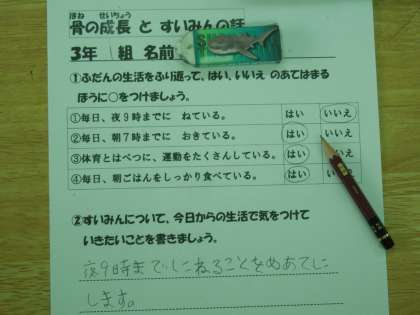 ほね せいちょう
骨の成長 と すいみんの話
3年 組 名前
①ふだんの生活をふり返って、はい、いいえ のあてはまる
ほうに○をつけましょう。
①毎日、夜9時までに ねている。 はい いいえ
②毎日、朝7時までに おきている。 はい いいえ
③体育とはべつに、運動をたくさんしている。 はい
④毎日、朝ごはんをしっかり食べている。 はい いいえ
②すいみんについて、今日からの生活で気をつけて
いきたいことを書きましょう。
夜9時までにねることをめあてに
します。